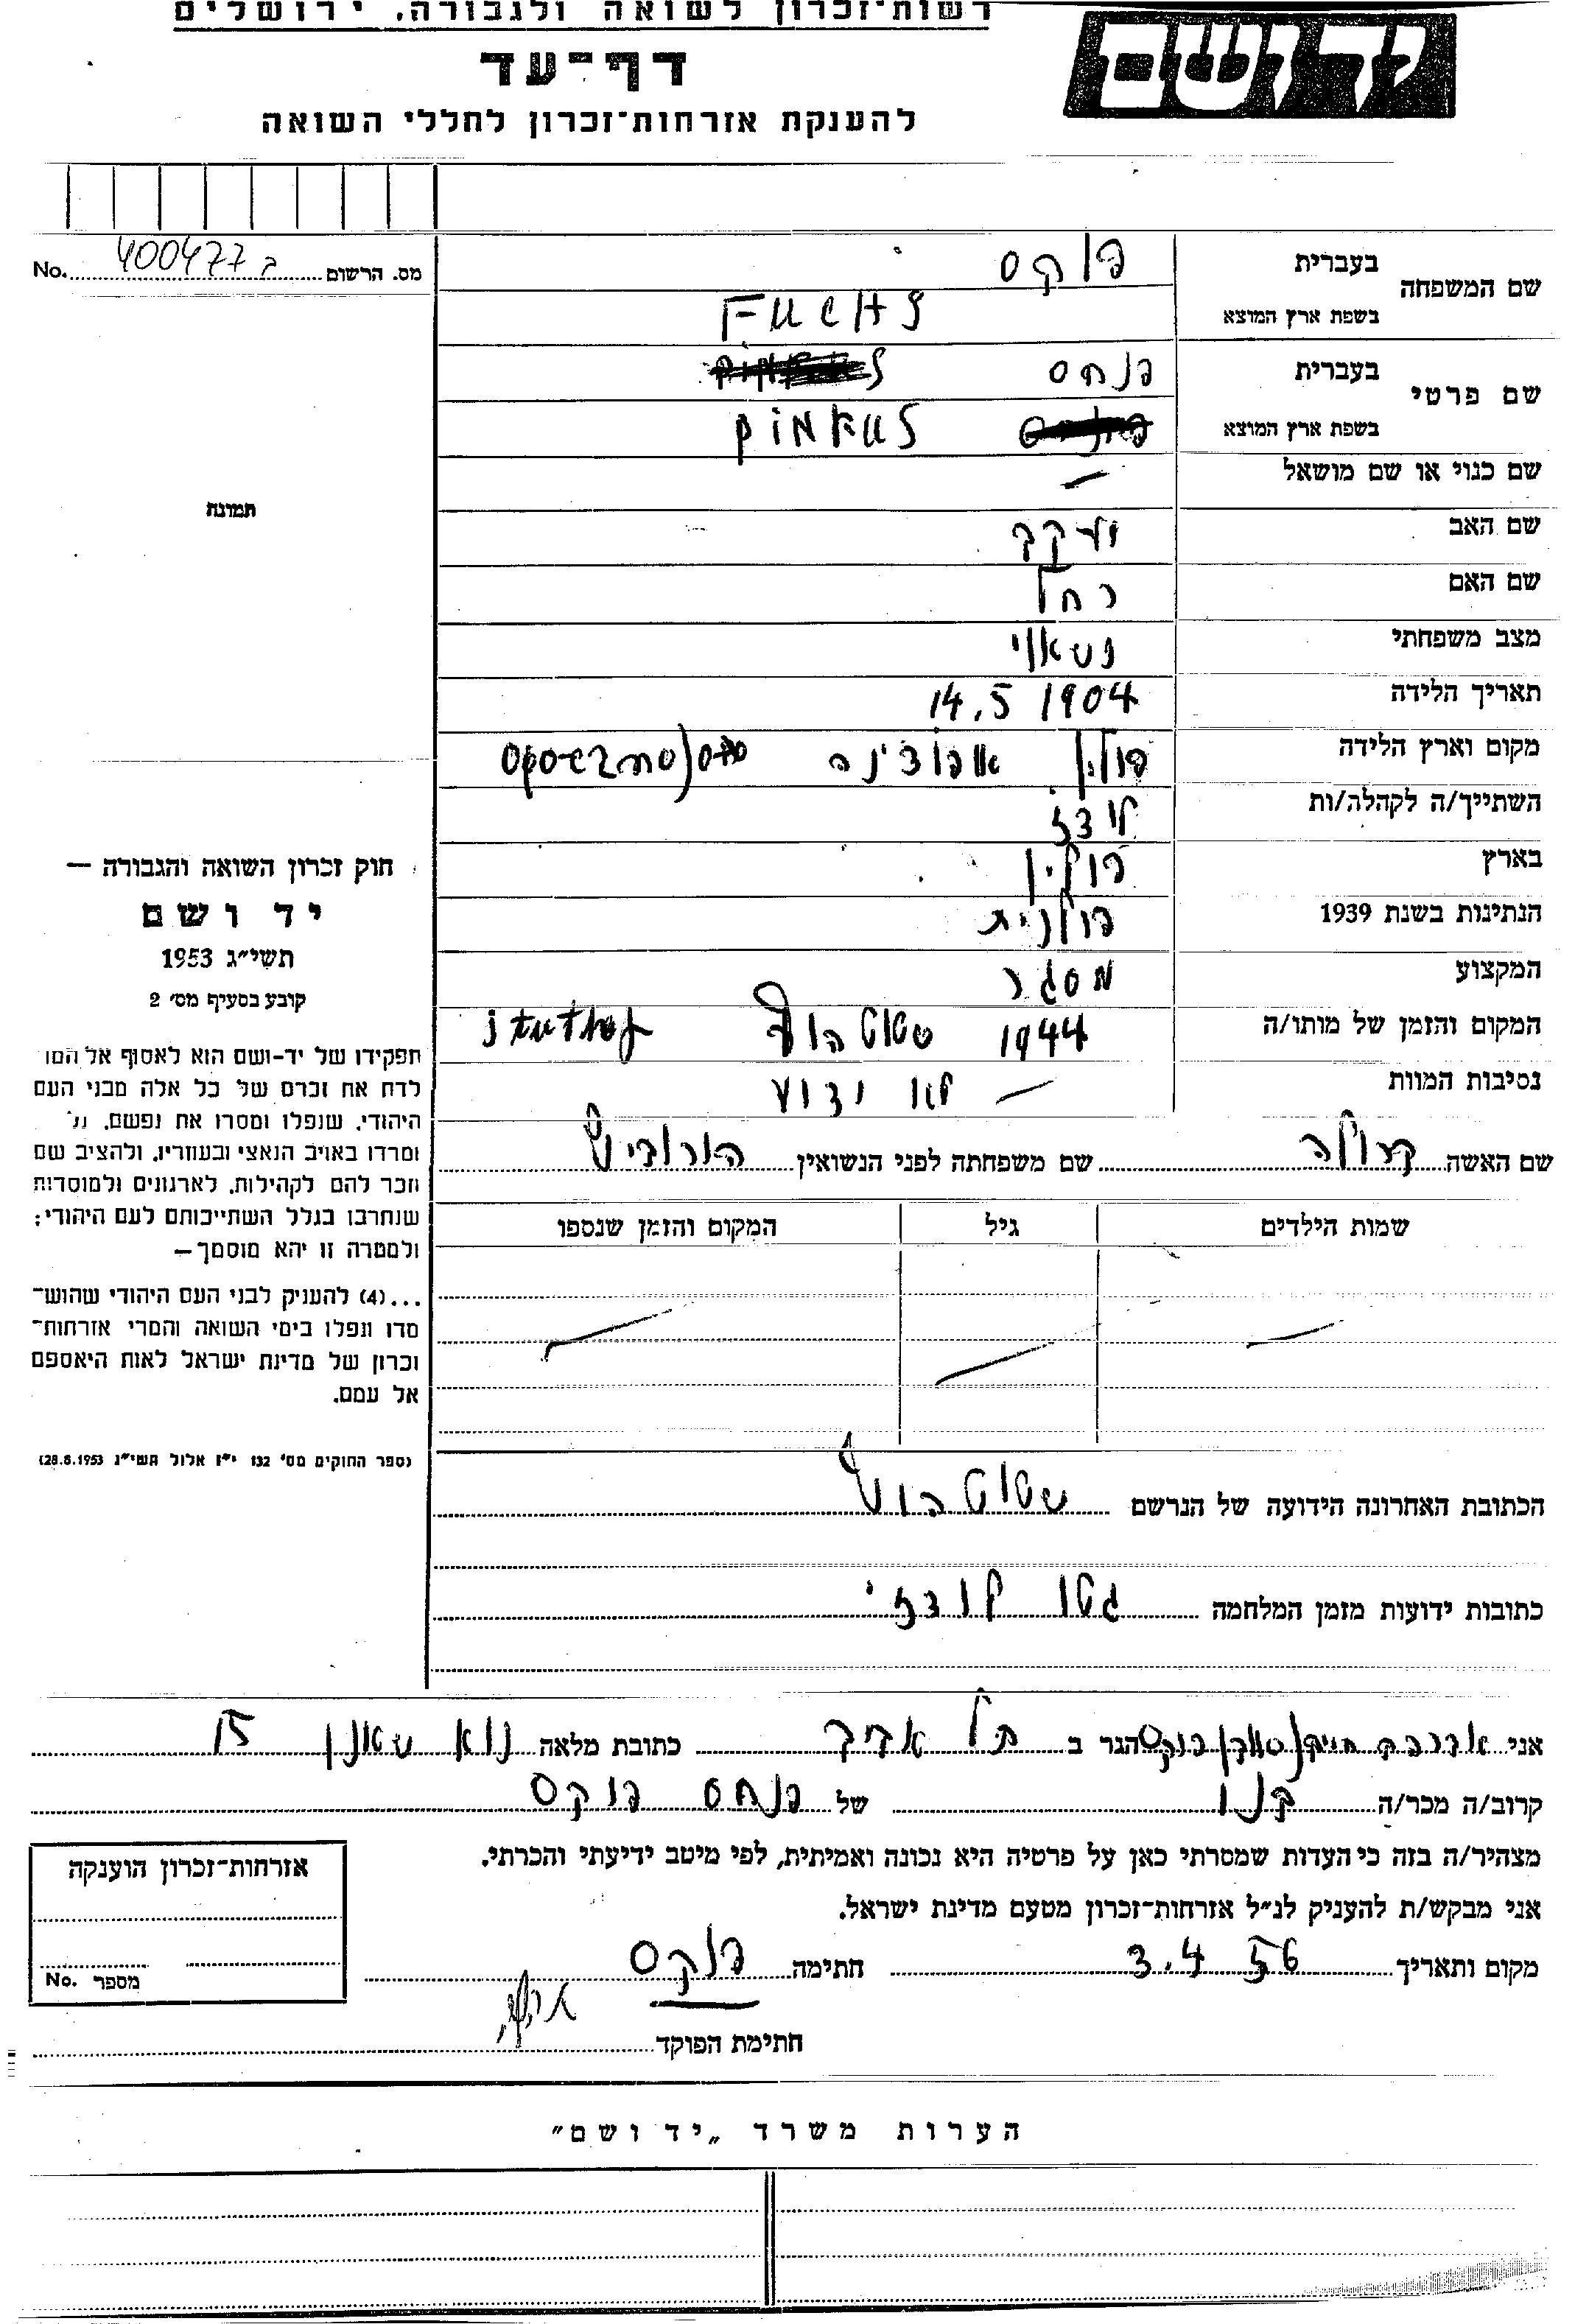 רשות־זכרון לשואה ולגבורה, ירושלים
יד ושם
דף־עד
להענקת אזרחות־זכרון לחללי השואה
No. 400477 מס. הרשום
שם המשפחה
בעברית פוקס
בשפת ארץ המוצא FUCHS
שם פרטי
בעברית פנחס
בשפת ארץ המוצא PINKUS
שם כנוי או שם מושאל —
שם האב יעקב
שם האם רחל
מצב משפחתי נשאוי
תאריך הלידה 14.5 1904
מקום וארץ הלידה פולין
השתייך/ה לקהלה/ות לודז
בארץ פולין
הנתינות בשנת 1939 פולנית
המקצוע מסגר
המקום והזמן של מותו/ה 1944 שטוטהוף stuthof
נסיבות המוות — לא ידוע
שם האשה שם משפחתה לפני הנשואין הורוביץ
שמות הילדים גיל המקום והזמן שנספו
הכתובת האחרונה הידועה של הנרשם שטוטהוף
כתובות ידועות מזמן המלחמה גטו לודזי
תמונה
חוק זכרון השואה והגבורה —
יד ושם
תשי״ג 1953
קובע בסעיף מס׳ 2
תפקידו של יד-ושם הוא לאסוף אל המו
לדת את זכרם של כל אלה מבני העם
היהודי, שנפלו ומסרו את נפשם,
ומרדו באויב הנאצי ובעוזריו, ולהציב שם
וזכר להם לקהילות, לארגונים ולמוסדות
שנחרבו בגלל השתייכותם לעם היהודי;
ולמטרה זו יהא מוסמך—
...(4) להעניק לבני העם היהודי שהוש־
מדו ונפלו בימי השואה והמרי אזרחות־
זכרון של מדינת ישראל לאות היאספם
אל עמם.
(ספר החוקים מס׳ 132 י״ז אלול תשי״ג 28.8.1953)
אני פוקס הגר ב תל אביב כתובת מלאה נוא שאנן 15
קרוב/ה מכר/ה בנו של פנחס פוקס
מצהיר/ה בזה כי העדות שמסרתי כאן על פרטיה היא נכונה ואמיתית, לפי מיטב ידיעתי והכרתי.
אני מבקש/ת להעניק לנ״ל אזרחות־זכרון מטעם מדינת ישראל.
מקום ותאריך 3.4.56 חתימה פוקס
חתימת הפוקד
אזרחות־זכרון הוענקה
No. מספר
הערות משרד „יד ושם״